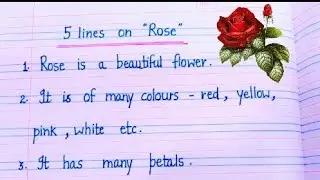 5 lines on "Rose"
1. Rose is a beautiful flower.
2. It is of many colours - red, yellow,
pink, white etc.
3. It has many petals.